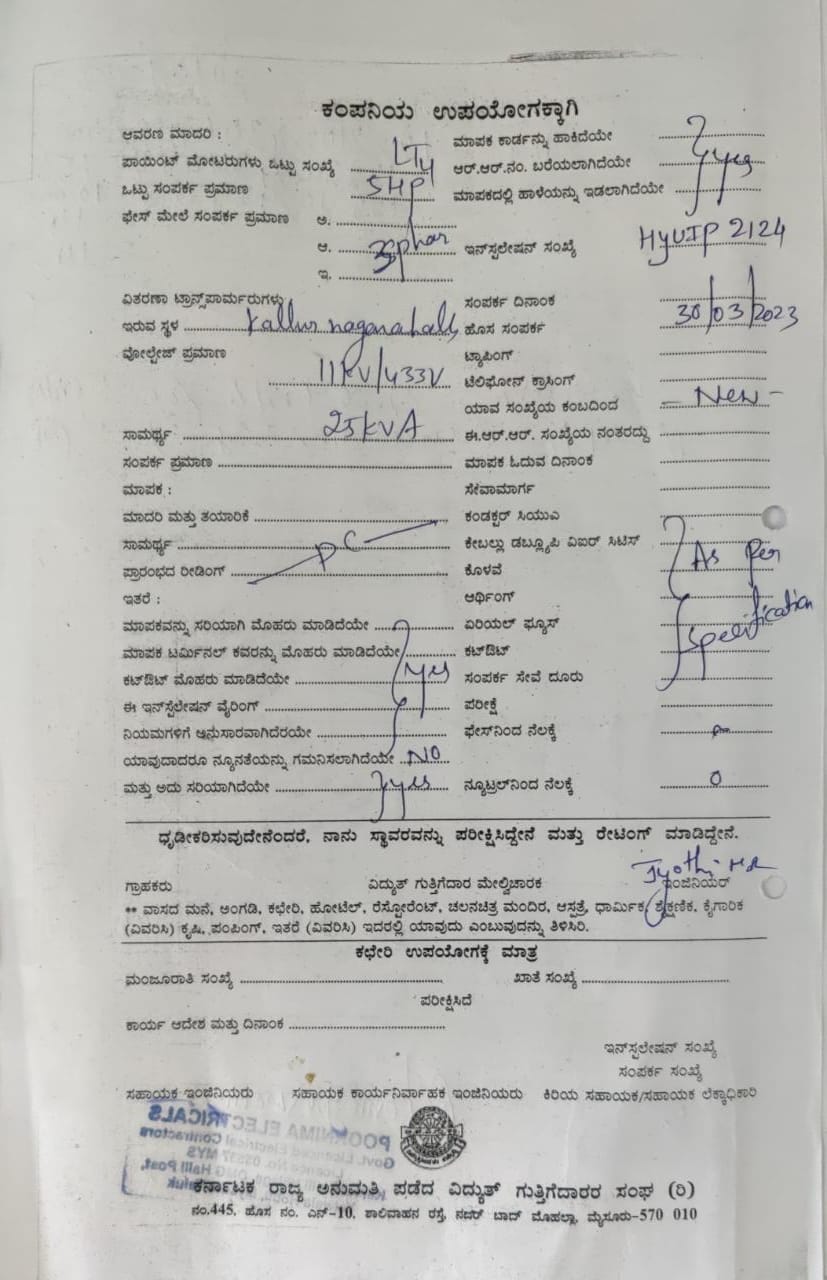 ಕಂಪನಿಯ ಉಪಯೋಗಕ್ಕಾಗಿ
ಆವರಣ ಮಾದರಿ : ಮಾಪಕ ಕಾರ್ಡನ್ನು ಹಾಕಿದೆಯೇ
ಪಾಯಿಂಟ್ ಮೋಟರುಗಳು ಒಟ್ಟು ಸಂಖ್ಯೆ LT4 ಆರ್.ಆರ್.ನಂ. ಬರೆಯಲಾಗಿದೆಯೇ yes
ಒಟ್ಟು ಸಂಪರ್ಕ ಪ್ರಮಾಣ 5HP ಮಾಪಕದಲ್ಲಿ ಹಾಳೆಯನ್ನು ಇಡಲಾಗಿದೆಯೇ
ಫೇಸ್ ಮೇಲೆ ಸಂಪರ್ಕ ಪ್ರಮಾಣ ಅ.
ಆ. ಇನ್‌ಸ್ಟಲೇಷನ್ ಸಂಖ್ಯೆ HYUIP 2124
ಇ.
ವಿತರಣಾ ಟ್ರಾನ್ಸ್‌ಫಾರ್ಮರುಗಳು ಸಂಪರ್ಕ ದಿನಾಂಕ 30/03/2023
ಇರುವ ಸ್ಥಳ Kallur naganahally ಹೊಸ ಸಂಪರ್ಕ
ವೋಲ್ಟೇಜ್ ಪ್ರಮಾಣ 11KV/433V ಟ್ಯಾಪಿಂಗ್
ಟೆಲಿಫೋನ್ ಕ್ರಾಸಿಂಗ್
ಯಾವ ಸಂಖ್ಯೆಯ ಕಂಬದಿಂದ - New -
ಸಾಮರ್ಥ್ಯ 25KVA ಈ.ಆರ್.ಆರ್. ಸಂಖ್ಯೆಯ ನಂತರದ್ದು
ಸಂಪರ್ಕ ಪ್ರಮಾಣ ಮಾಪಕ ಓದುವ ದಿನಾಂಕ
ಮಾಪಕ : ಸೇವಾಮಾರ್ಗ
ಮಾದರಿ ಮತ್ತು ತಯಾರಿಕೆ ಕಂಡಕ್ಟರ್ ಸಿಯುಎ
ಸಾಮರ್ಥ್ಯ PC ಕೇಬಲ್ಲು ಡಬ್ಲ್ಯೂಪಿ ವಿಐರ್ ಸಿಟಿಸ್ As Per
ಪ್ರಾರಂಭದ ರೀಡಿಂಗ್ ಕೊಳವೆ
ಇತರೆ : ಆರ್ಥಿಂಗ್
ಮಾಪಕವನ್ನು ಸರಿಯಾಗಿ ಮೊಹರು ಮಾಡಿದೆಯೇ ಏರಿಯಲ್ ಫ್ಯೂಸ್ Specification
ಮಾಪಕ ಟರ್ಮಿನಲ್ ಕವರನ್ನು ಮೊಹರು ಮಾಡಿದೆಯೇ ಕಟ್‌ಔಟ್
ಕಟ್‌ಔಟ್ ಮೊಹರು ಮಾಡಿದೆಯೇ yes ಸಂಪರ್ಕ ಸೇವೆ ದೂರು
ಈ ಇನ್‌ಸ್ಟೆಲೇಷನ್ ವೈರಿಂಗ್ ಪರೀಕ್ಷೆ
ನಿಯಮಗಳಿಗೆ ಅನುಸಾರವಾಗಿದೆರಯೇ ಫೇಸ್‌ನಿಂದ ನೆಲಕ್ಕೆ
ಯಾವುದಾದರೂ ನ್ಯೂನತೆಯನ್ನು ಗಮನಿಸಲಾಗಿದೆಯೇ NO
ಮತ್ತು ಅದು ಸರಿಯಾಗಿದೆಯೇ yes ನ್ಯೂಟ್ರಲ್‌ನಿಂದ ನೆಲಕ್ಕೆ 0
ಧೃಡೀಕರಿಸುವುದೇನೆಂದರೆ, ನಾನು ಸ್ಥಾವರವನ್ನು ಪರೀಕ್ಷಿಸಿದ್ದೇನೆ ಮತ್ತು ರೇಟಿಂಗ್ ಮಾಡಿದ್ದೇನೆ.
Jyothi
ಗ್ರಾಹಕರು ವಿದ್ಯುತ್ ಗುತ್ತಿಗೆದಾರ ಮೇಲ್ವಿಚಾರಕ ಇಂಜಿನಿಯರ್
** ವಾಸದ ಮನೆ, ಅಂಗಡಿ, ಕಛೇರಿ, ಹೋಟೆಲ್, ರೆಸ್ಟೋರೆಂಟ್, ಚಲನಚಿತ್ರ ಮಂದಿರ, ಆಸ್ಪತ್ರೆ, ಧಾರ್ಮಿಕ, ಶೈಕ್ಷಣಿಕ, ಕೈಗಾರಿಕ
(ವಿವರಿಸಿ) ಕೃಷಿ, ಪಂಪಿಂಗ್, ಇತರೆ (ವಿವರಿಸಿ) ಇದರಲ್ಲಿ ಯಾವುದು ಎಂಬುವುದನ್ನು ತಿಳಿಸಿರಿ.
ಕಛೇರಿ ಉಪಯೋಗಕ್ಕೆ ಮಾತ್ರ
ಮಂಜೂರಾತಿ ಸಂಖ್ಯೆ ಖಾತೆ ಸಂಖ್ಯೆ
ಪರೀಕ್ಷಿಸಿದೆ
ಕಾರ್ಯ ಆದೇಶ ಮತ್ತು ದಿನಾಂಕ
ಇನ್‌ಸ್ಟಲೇಷನ್ ಸಂಖ್ಯೆ
ಸಂಪರ್ಕ ಸಂಖ್ಯೆ
ಸಹಾಯಕ ಇಂಜಿನಿಯರು ಸಹಾಯಕ ಕಾರ್ಯನಿರ್ವಾಹಕ ಇಂಜಿನಿಯರು ಕಿರಿಯ ಸಹಾಯಕ/ಸಹಾಯಕ ಲೆಕ್ಕಾಧಿಕಾರಿ
POORNIMA ELECTRICALS
Govt. Licenced Electrical Contractors
ಕರ್ನಾಟಕ ರಾಜ್ಯ ಅನುಮತಿ ಪಡೆದ ವಿದ್ಯುತ್ ಗುತ್ತಿಗೆದಾರರ ಸಂಘ (ರಿ)
ನಂ.445, ಹೊಸ ನಂ. ಎನ್-10, ಶಾಲಿವಾಹನ ರಸ್ತೆ, ನಜರ್ ಬಾದ್ ಮೊಹಲ್ಲಾ, ಮೈಸೂರು-570 010